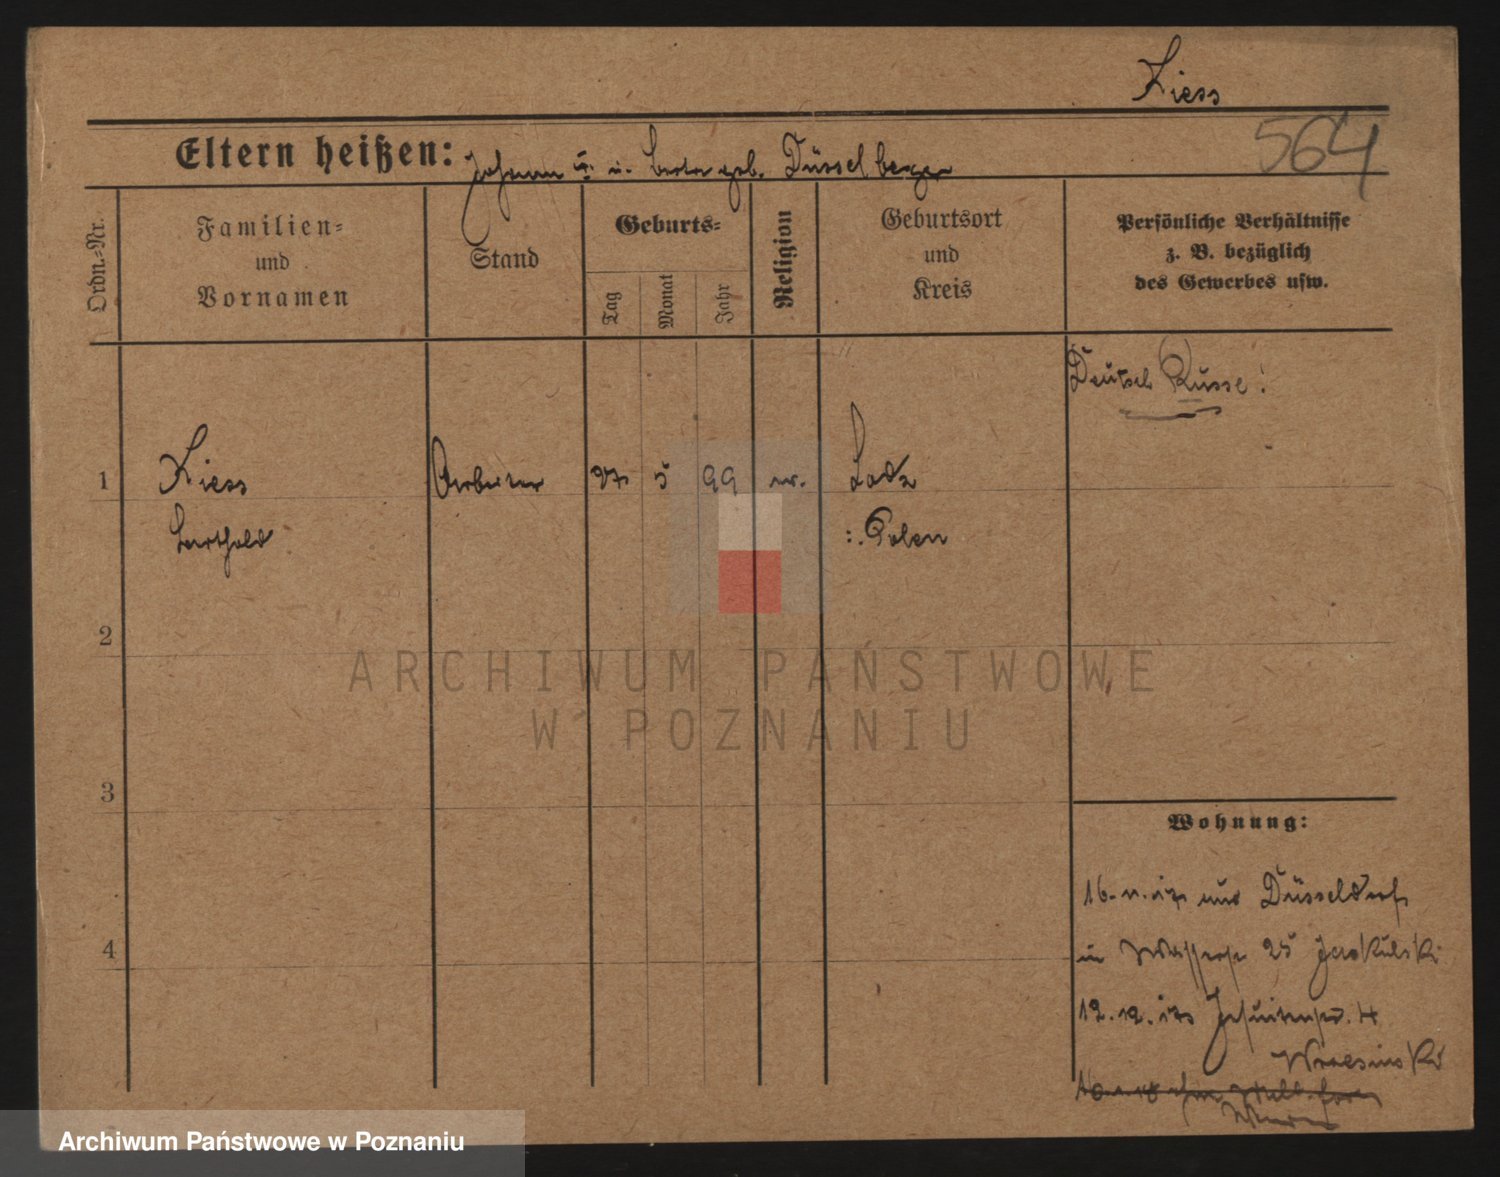 Kiess
564
Eltern heißen: Johann u. Berta geb. Düsselberger
Ordn.-Nr.
Familien-
und
Vornamen
Stand
Geburts-
Tag
Monat
Jahr
Religion
Geburtsort
und
Kreis
Persönliche Verhältnisse
z. B. bezüglich
des Gewerbes usw.
Deutsch Russe!
1 Kiess Arbeiter 27 5 99 ev. Lodz
Berthold Polen
2
3
4
ARCHIWUM PAŃSTWOWE
W POZNANIU
Wohnung:
16.11.17 aus Düsseldorf
in 25
12.12.17 Jesuitenstr. 4
Wroesinski
Archiwum Państwowe w Poznaniu